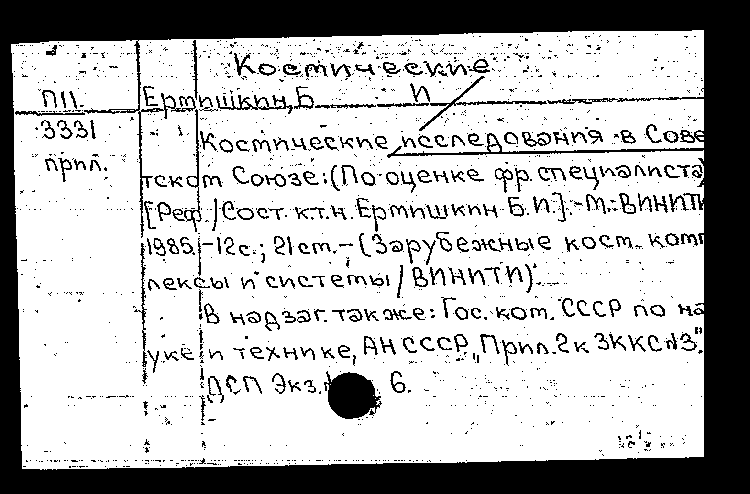 Космические
П11. Ермишкин, Б И
3331 Космические исследования в Сове
прил. тском Союзе: (По оценке фр. специалиста)
[Реф./Сост. к.т.н. Ермишкин Б.И.].-М.: ВИНИТИ
1985.-12с.; 21см.-(Зарубежные косм. комп
лексы и системы / ВИНИТИ)
В надзаг. также: Гос. ком. СССР по на
уке и технике, АН СССР „Прил. 2 к ЗККС №3".
ДСП Экз. 6.